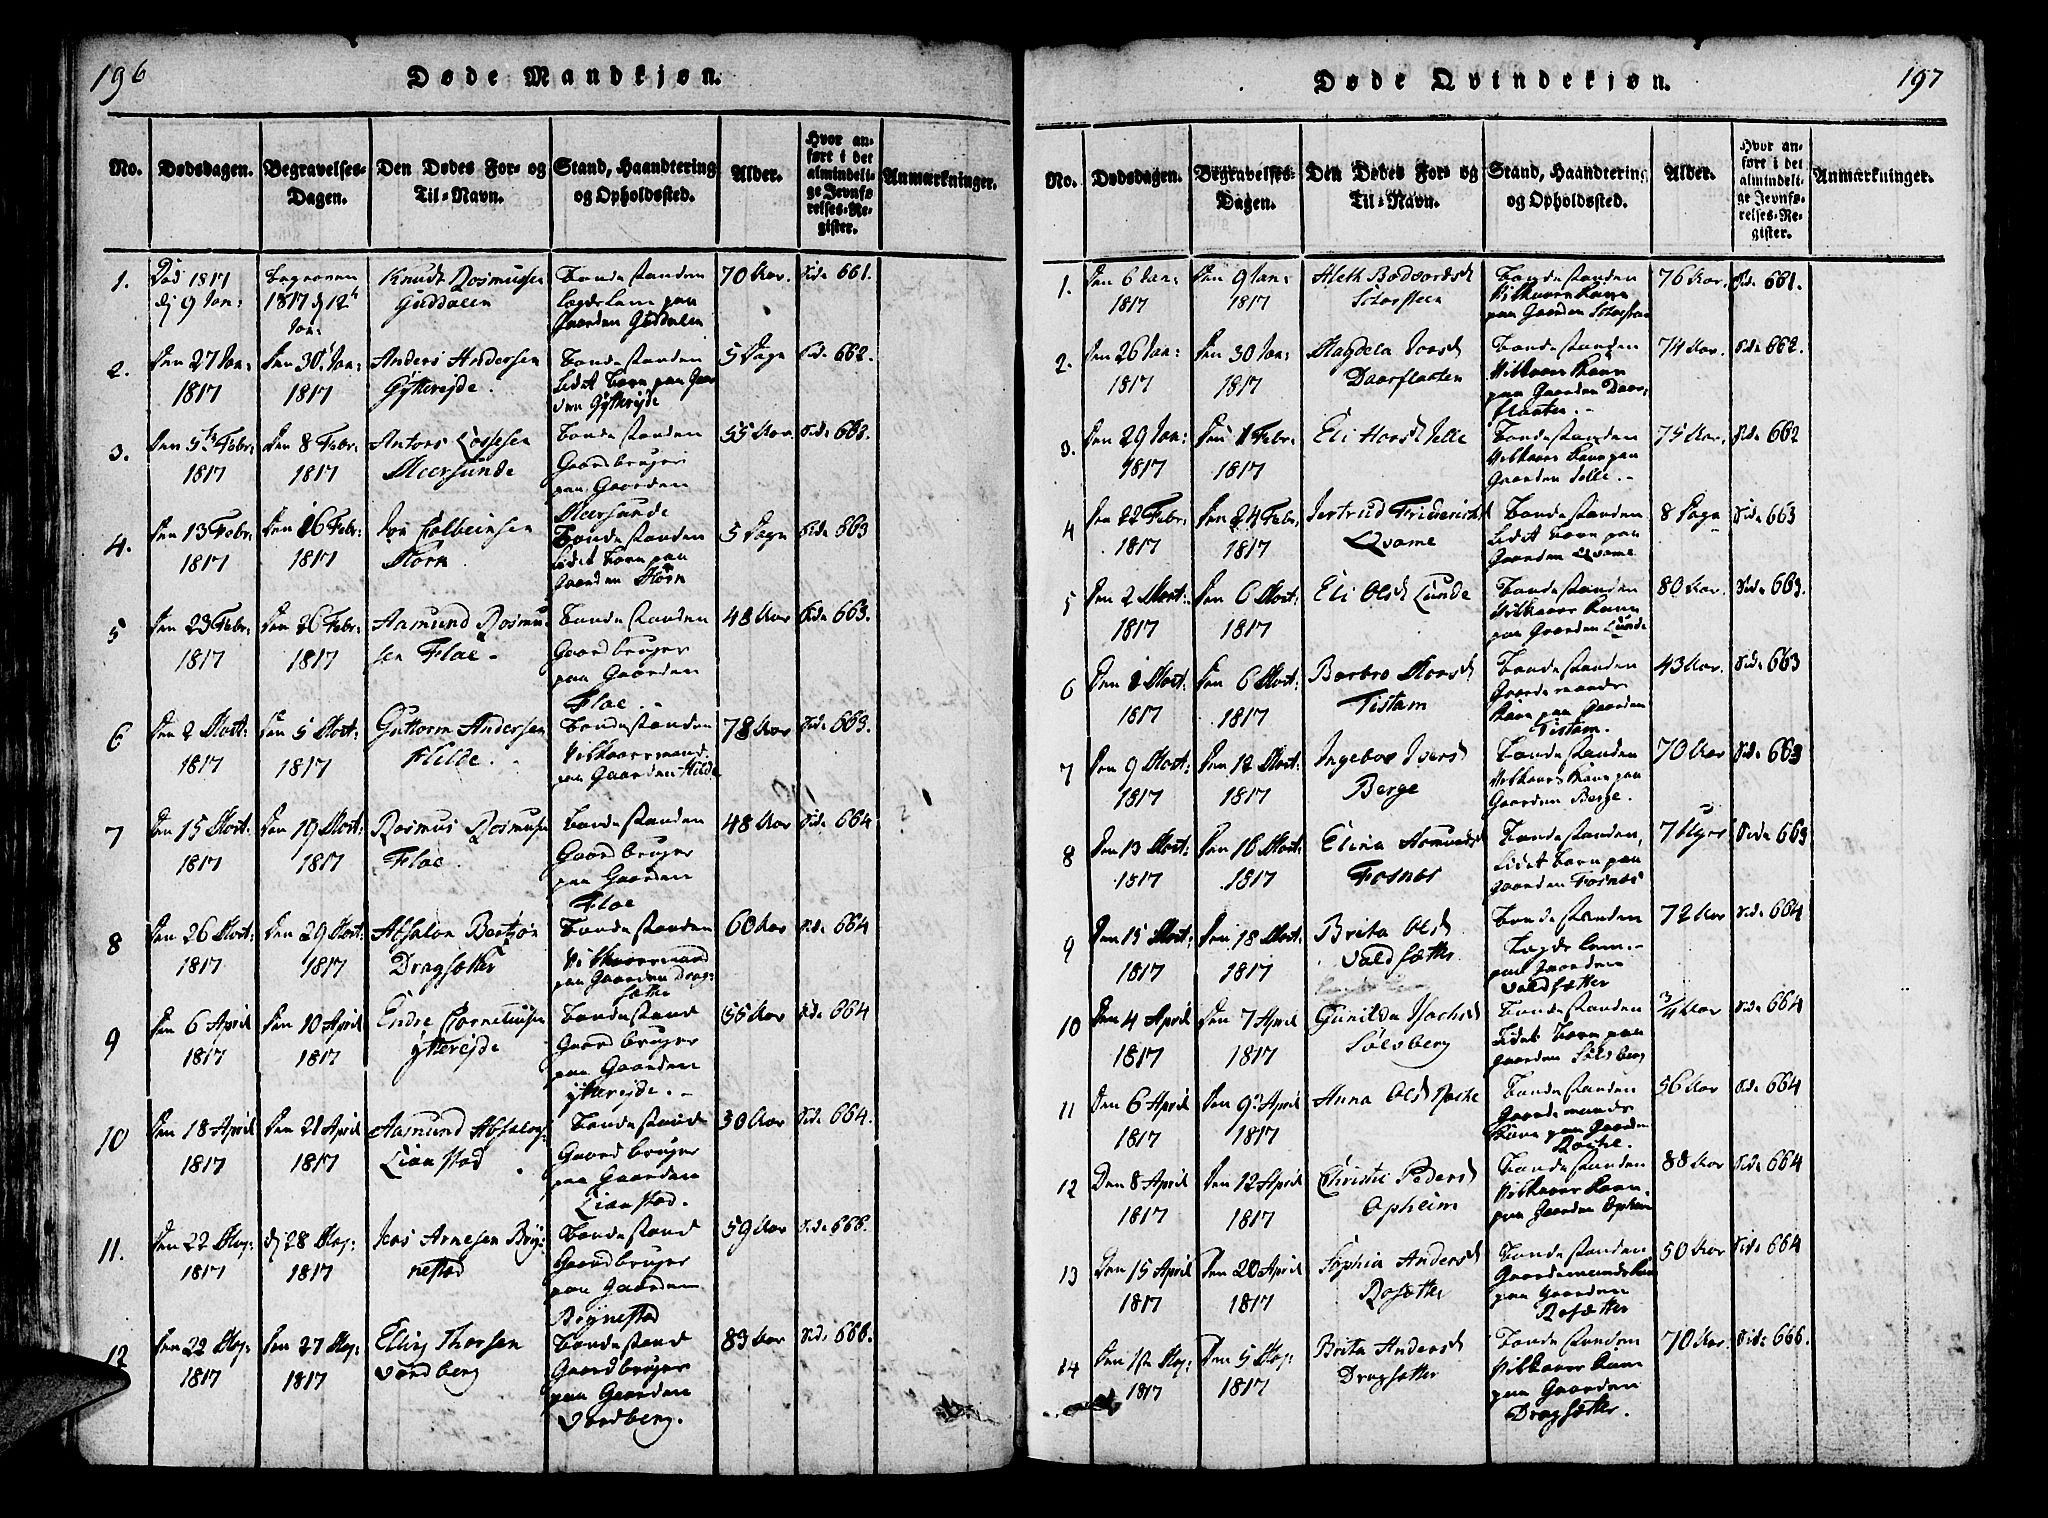 196
Døde Mandkjøn.
No.
Dødsdagen.
Begravelses-
Dagen.
Den Dødes For- og
Til-Navn.
Stand, Haandtering
og Opholdssted.
Alder.
Hvor an-
ført i det
almindeli-
ge Jevnfø-
relses-Re-
gister.
Anmærkninger.
1.
Død 1817
dj 9 Jan:
begraven
1817 dj 12
Jan:
Knudt Rasmussen
Guddalen
Bondestanden
Lægdslem paa
Gaarden Guddalen
70 Aar
Side 661.
2.
Den 27 Jan:
1817
Den 30 Jan:
1817
Anders Andersen
Ÿtterejde.
Bondestanden
Lidet barn paa Gaar
den Ÿtterejde
5 Dage
Side 662.
3.
Den 5te Febr:
1817
Den 8 Febr:
1817
Meersunde
Bondestanden
Gaardbruger
paa Gaarden
Meersunde
55 Aar
Side 663.
4.
Den 13 Febr:
1817
Den 16 Febr:
1817
Korn
Bondestanden
Lidet barn paa
Gaarden Korn
5 Dage
Side 663
5
Den 23 Febr:
1817
Den 26 Febr:
1817
Aamund Rasmus
sen Flae.
Bondestanden
Gaardbruger
paa Gaarden
Flae.
48 Aar
Side 663.
6
Den 2 Mart:
1817
Den 5 Mart:
1817
Guttorm Andersen
Hilde.
Bondestanden
Vilkaarsmand
paa Gaarden Hilde
78 Aar
Side 663.
7
Den 15 Mart:
1817
Den 19 Mart:
1817
Rasmus Rasmusen
Flae.
Bondestanden
Gaardbruger
paa Gaarden
Flae
48 Aar
Side 664
8
Den 26 Mart:
1817
Den 29 Mart:
1817
Absalon Bertzøn
Dragsætter
Bondestanden
Vilkaarsmand
paa Gaarden Drag-
sætter
60 Aar
Side 664
9
Den 6 April
1817
Den 10 April
1817
Endre Corneliusen
Ÿtterejde
Bondestand
Gaardbruger
paa Gaarden
Ÿtterejde.
55 Aar
Side 664
10
Den 18 April
1817
Den 21 April
1817
Aamund Absalons:
Lianstad
Bondestand
Gaardbruger
paa Gaarden
Lianstad.
30 Aar
Side 664.
11.
Den 22 Maj:
1817
dj 28 Maj:
1817
Jens Arnesen Brÿ-
nestad
Bondestand
Gaardbruger
paa Gaarden
Brÿnestad
59 Aar
Side 666.
12
Den 22 Maj:
1817
Den 27 Maj:
1817
Elling Thorsen
Vordberg
Bondestand
Gaardbruger
paa Gaarden
Vordberg.
83 Aar
Side 666.
197
Døde Qvindekjøn.
No.
Dødsdagen.
Begravelses-
Dagen.
Den Dødes For- og
Til-Navn.
Stand, Haandtering
og Opholdssted.
Alder.
Hvor an-
ført i det
almindeli-
ge Jevnfø-
relses-Re-
gister.
Anmærkninger.
1.
Den 6 Jan:
1817
Den 9 Jan:
1817
Storsteen
Bondestanden
Vilkaars Kone
paa Gaarden Storsteen
76 Aar.
Side 661.
2.
Den 26 Jan:
1817
Den 30 Jan:
1817
Magdela
Daarflaaten
Bondestanden
Vilkaars Kone
paa Gaarden Daar-
flaaten.
74 Aar.
Side 662.
3.
Den 29 Jan:
1817
Den 1 Febr.
1817
Eli Hansd Selle
Bondestanden
Vilkaars Kone paa
Gaarden Selle.
75 Aar.
Side 662
4
Den 22 Febr:
1817
Den 24 Febr.
1817
Jertrud Friderichsd
Qvame
Bondestanden
Lidet barn paa
Gaarden Qvame
8 Dage
Side 663
5
Den 2 Mart:
1817
Den 6 Mart:
1817
Eli Olsd Lunde
Bondestanden
Vilkaars Kone
paa Gaarden Lunde
80 Aar.
Side 663.
6
Den 1 Mart:
1817
Den 6 Mart:
1817
Barbro Monsd
Tistam
Bondestanden
Gaardemands
Kone paa Gaarden
Tistam.
43 Aar.
Side 663
7
Den 9 Mart:
1817
Den 12 Mart:
1817
Ingebor Iversd
Berge
Bondestanden
Vilkaars Kone paa
Gaarden Berge.
70 Aar
Side 663
8
Den 13 Mart:
1817
Den 16 Mart:
1817
Elina Aamundsd
Fosnæs
Bondestanden,
Lidet barn paa
gaarden Fosnæs
7 Uger
Side 663
9
Den 15 Mart:
1817
Den 18 Mart:
1817
Brita Olsd
Voldsætter
Bondestanden
Lægdslem.
paa Gaarden
Voldsætter
72 Aar
Side 664
10
Den 4 April
1817
Den 7 April
1817
Gunilda Isachsd
Solsberg
Bondestanden
Lidet barn paa
gaarden Solsberg
3/4 Aar
Side 664
11
Den 6 April
1817
Den 9 April
1817
Anna Olsd
Bondestanden
Gaardemands
Kone paa Gaarden
56 Aar
Side 664
12
Den 8 April
1817
Den 12 April
1817
Christi Pedersd
Opheim
Bondestanden
Vilkaars Kone.
paa Gaarden Opheim
88 Aar
Side 664
13
Den 15 April
1817
Den 20 April
1817
Sophia Andersd
Rosætter
Bondestanden
Gaardemands Kone
paa Gaarden
Rosætter
50 Aar
Side 664
14
Den 1ste Maj:
1817
Den 5 Maj:
1817
Brita Andersd
Dragsætter
Bondestanden
Vilkaars Kone
paa Gaarden
Dragsætter.
70 Aar.
Side 666.